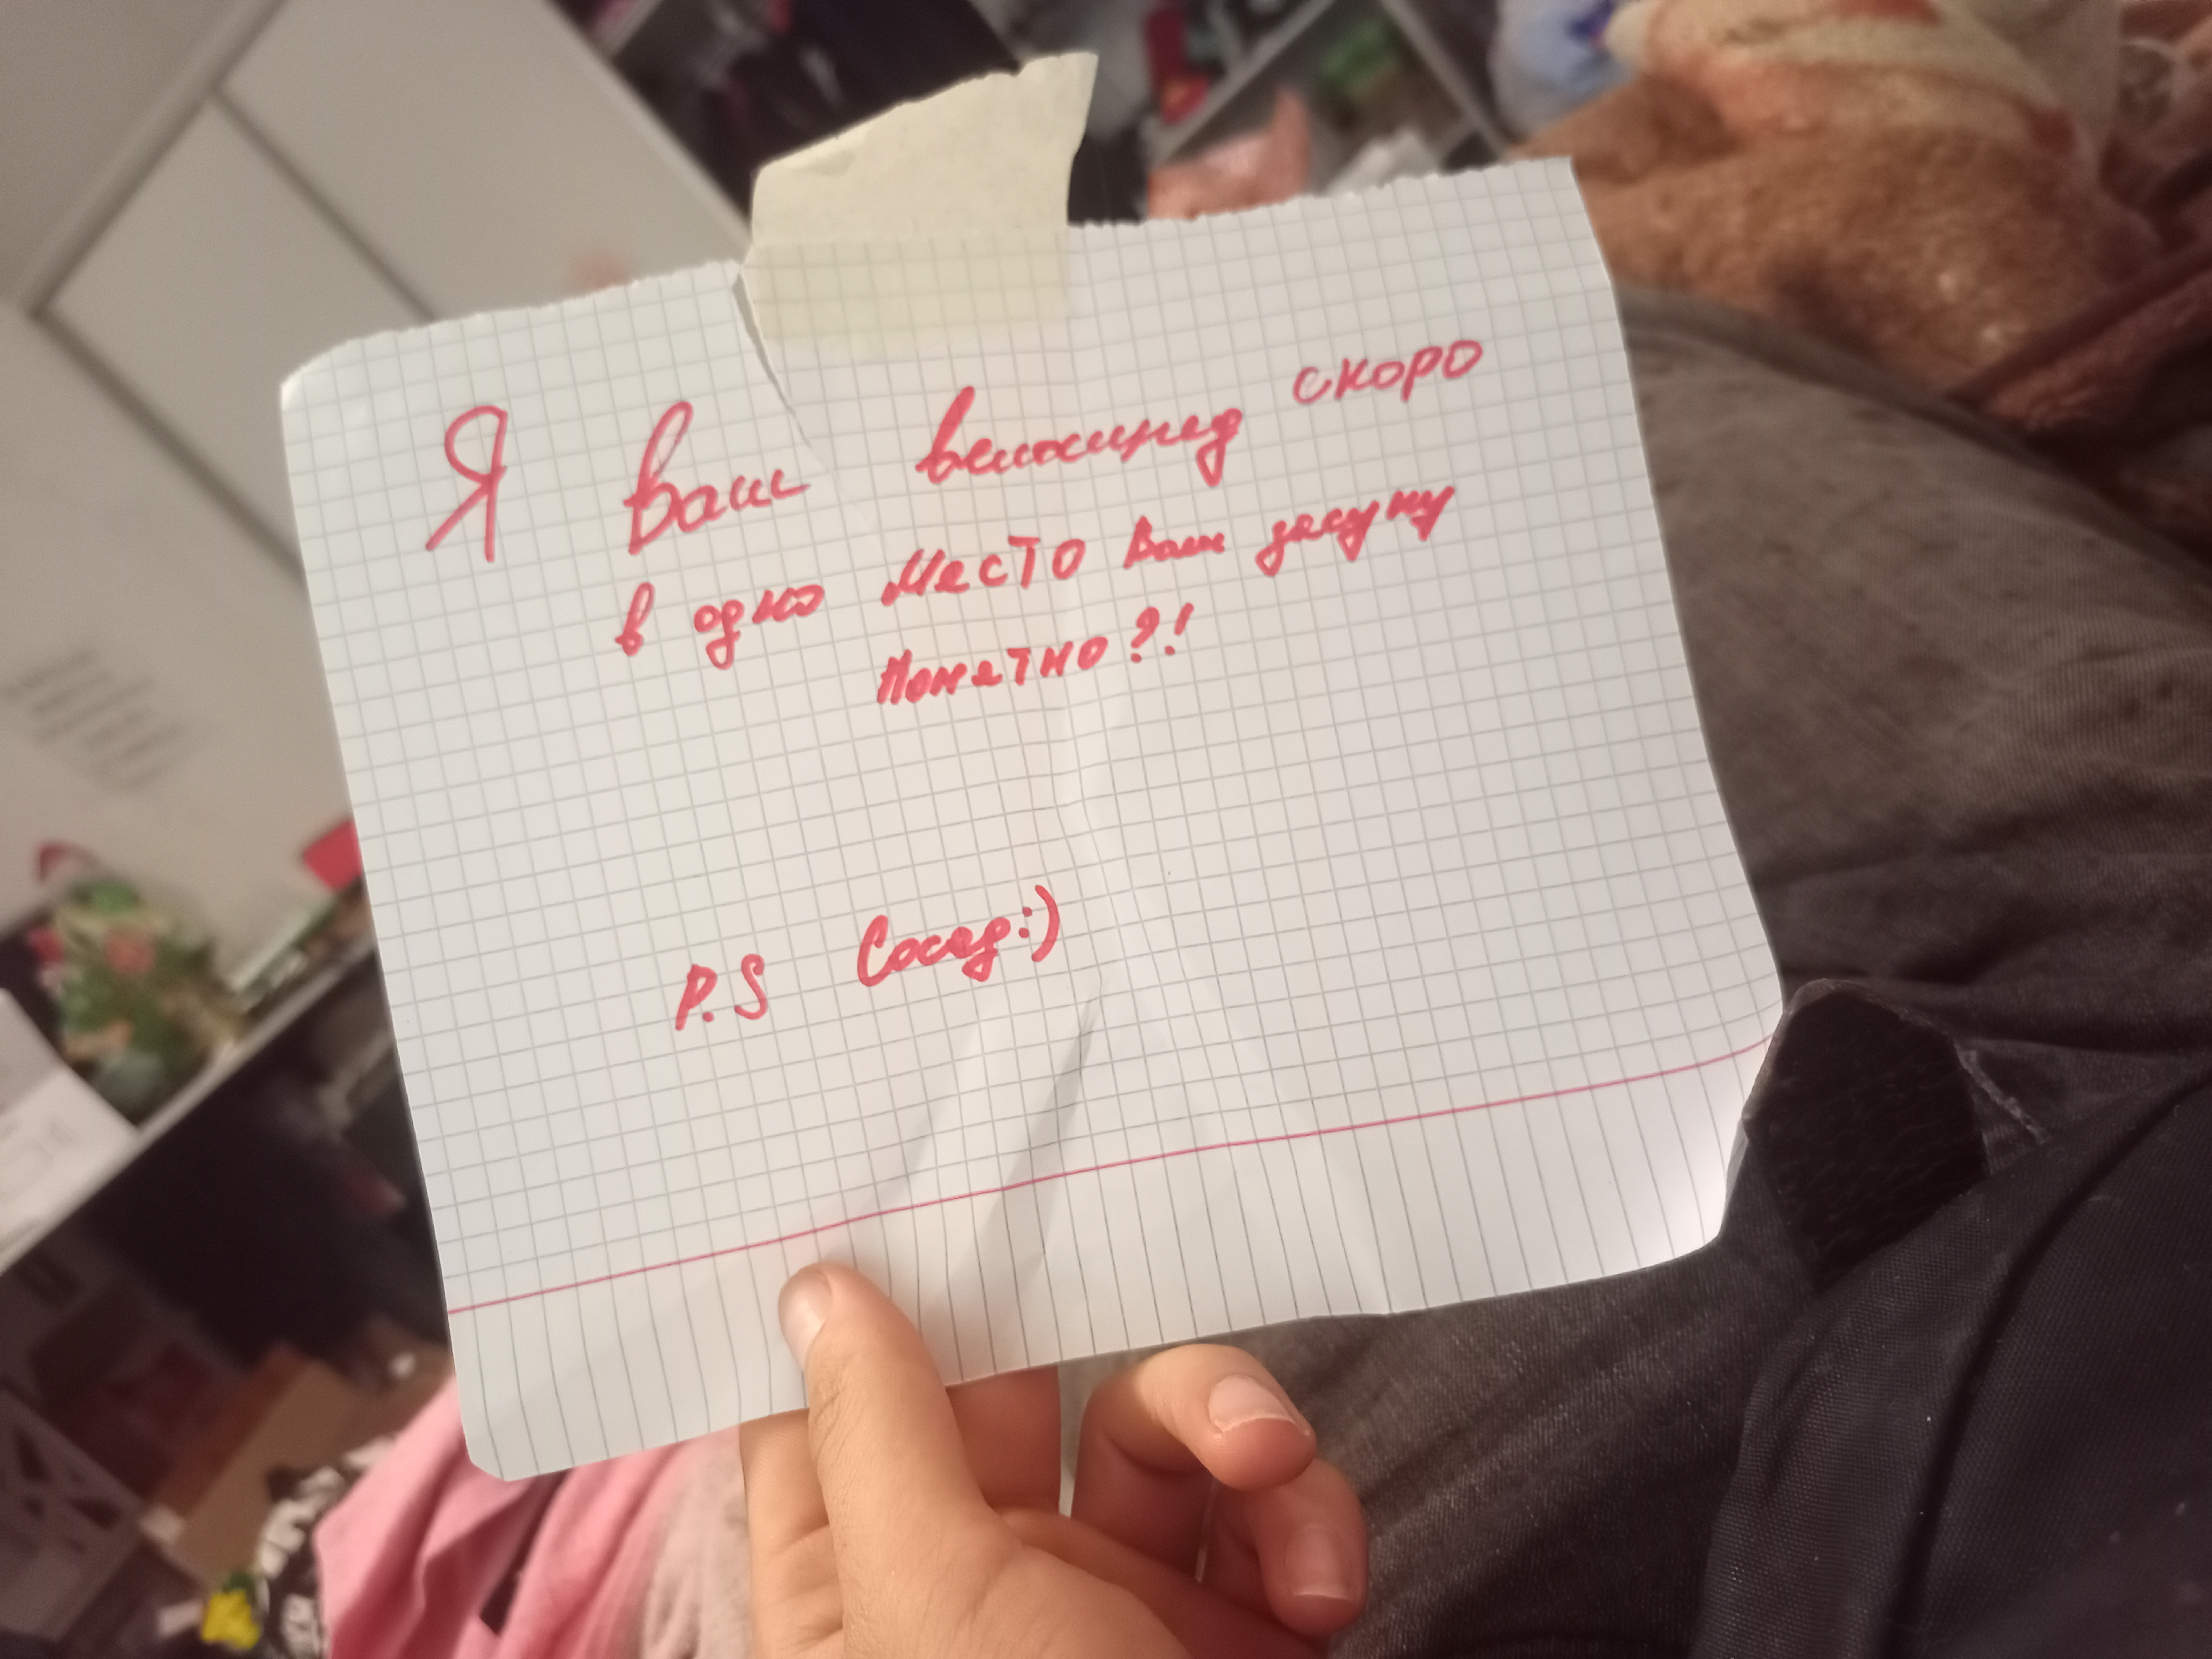 Я ваш велосипед скоро
в одно место вам засуну
Понятно?!
P.S Сосед:)